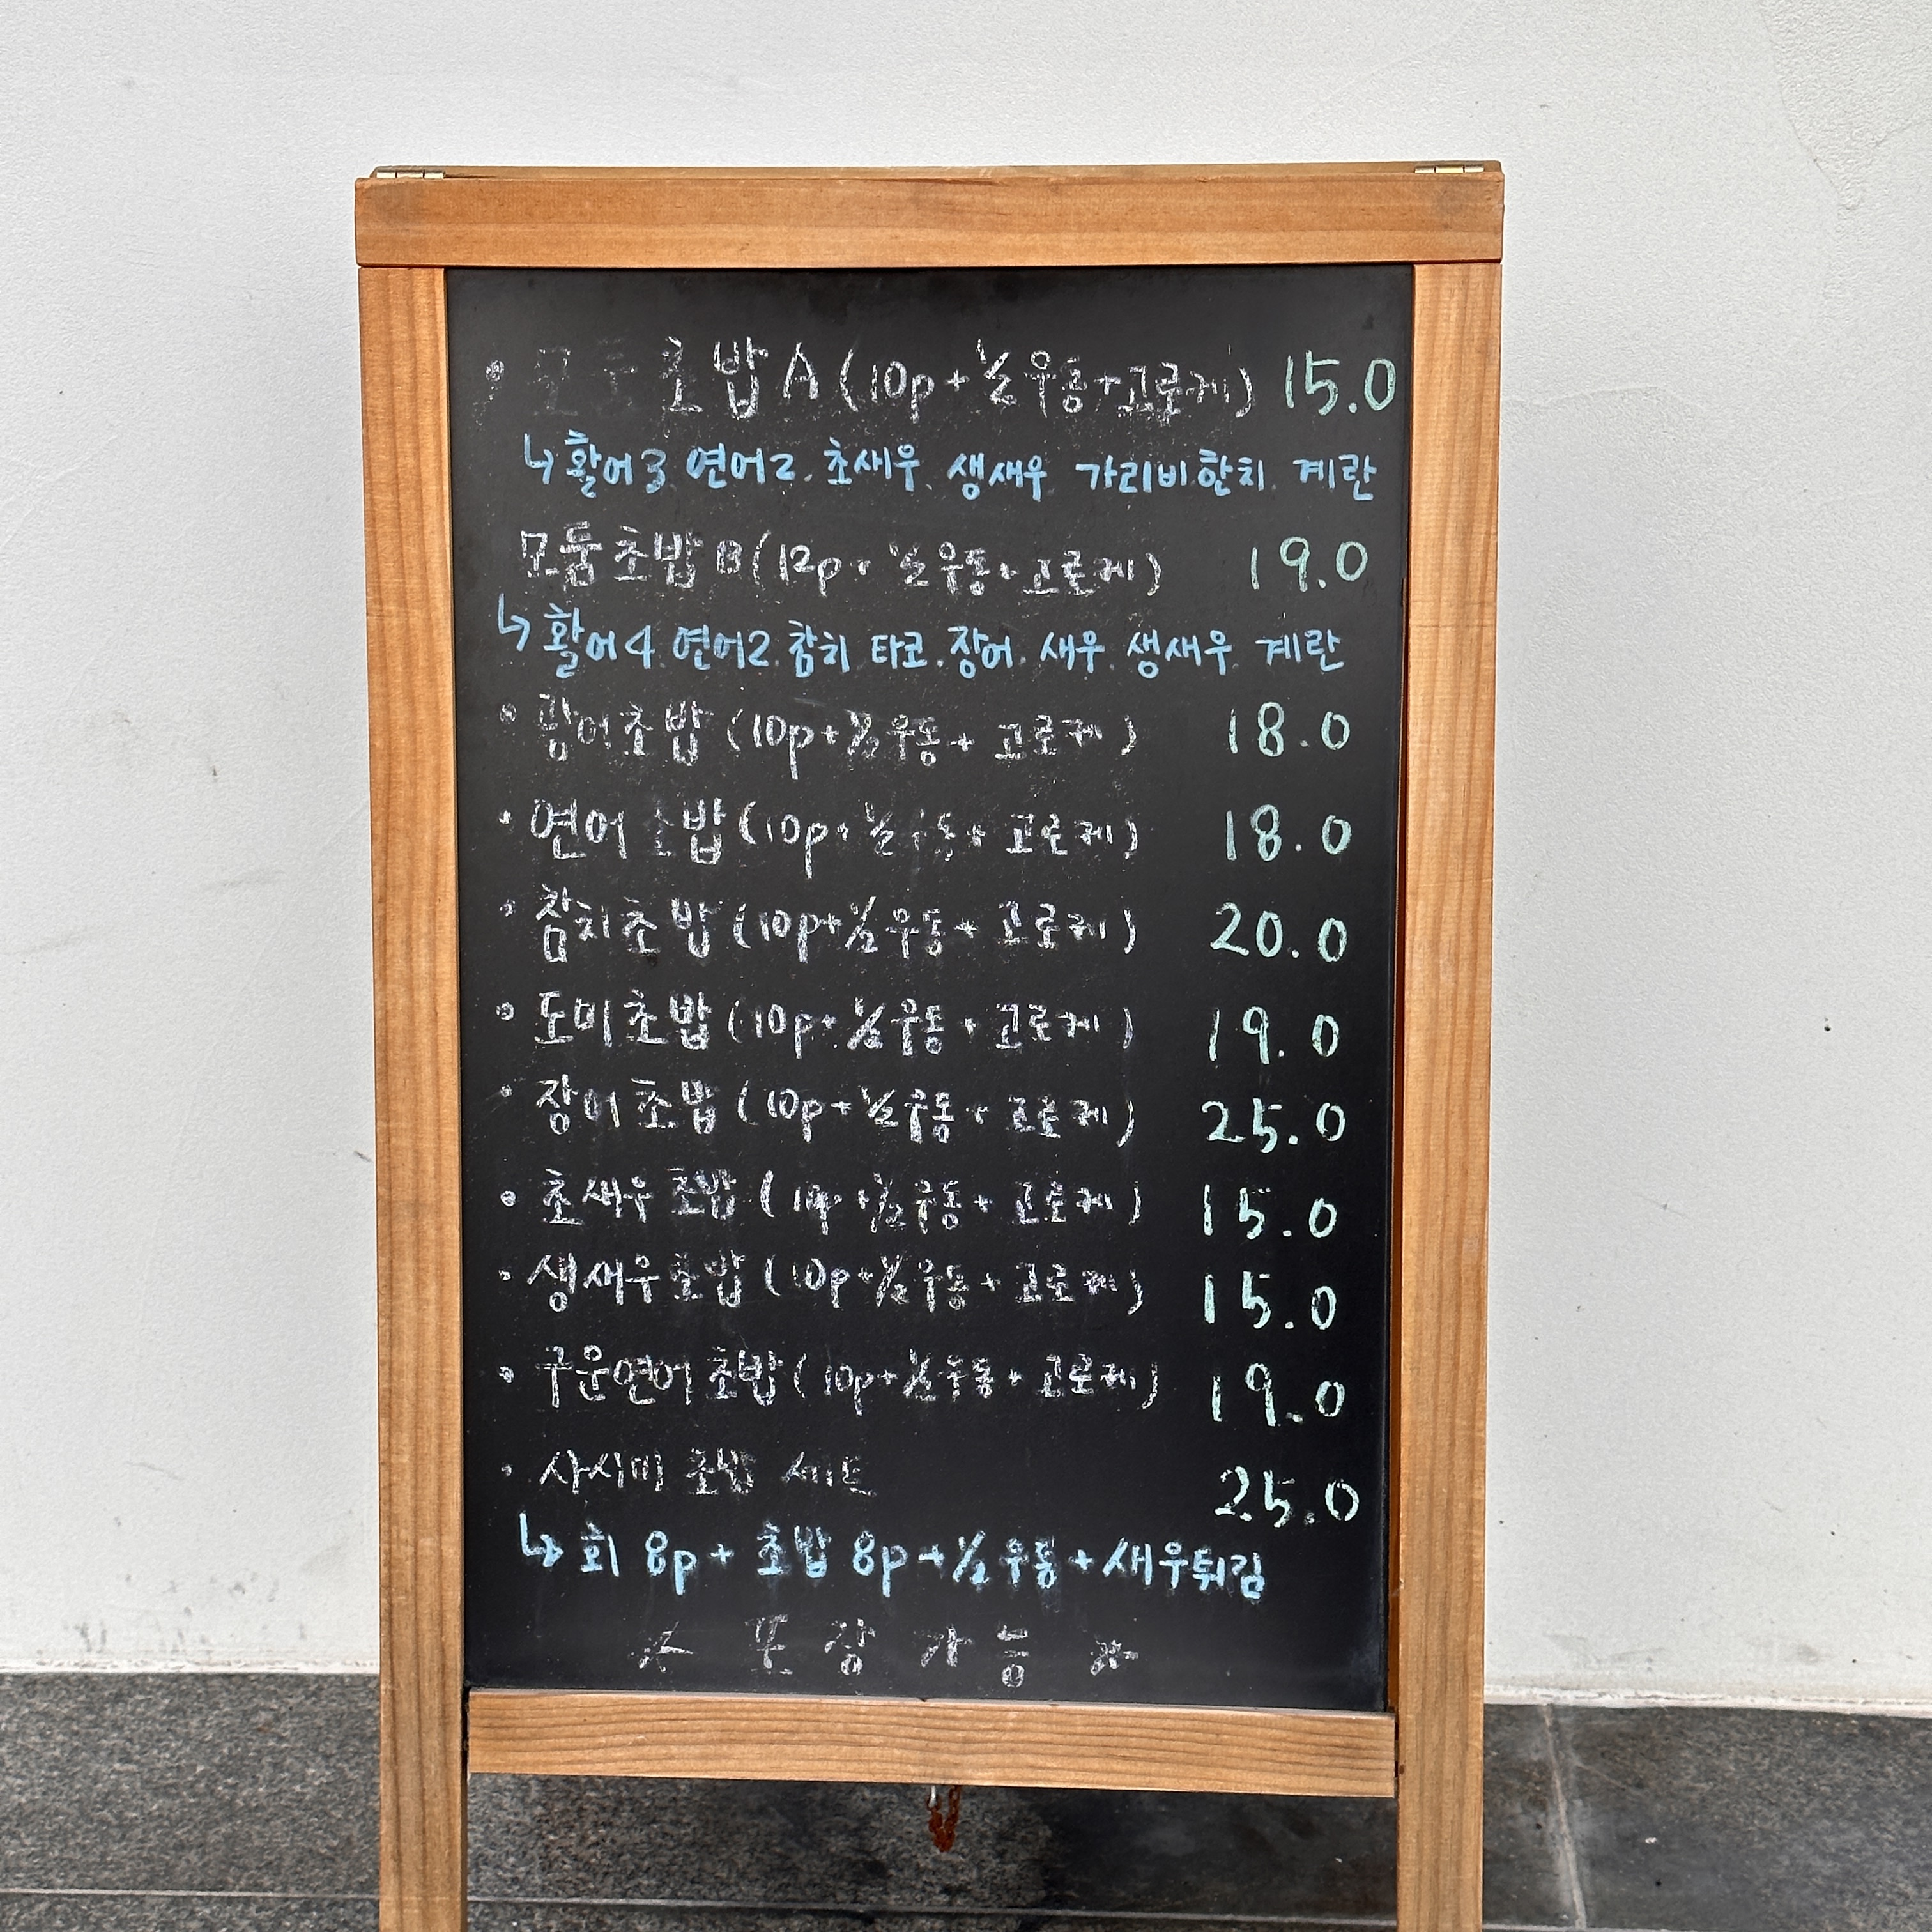 • 모둠초밥 A (10p + ½우동 + 고로케) 15.0
↳ 활어3 연어2. 초새우. 생새우 가리비. 한치. 계란
모둠초밥 B (12p + ½우동 + 고로케) 19.0
↳ 활어4 연어2. 참치 타코. 장어. 새우. 생새우. 계란
• 광어초밥 (10p + ½우동 + 고로케) 18.0
• 연어초밥 (10p + ½우동 + 고로케) 18.0
• 참치초밥 (10p + ½우동 + 고로케) 20.0
• 도미초밥 (10p + ½우동 + 고로케) 19.0
• 장어초밥 (10p + ½우동 + 고로케) 25.0
• 초새우 초밥 (10p + ½우동 + 고로케) 15.0
• 생새우초밥 (10p + ½우동 + 고로케) 15.0
• 구운연어 초밥 (10p + ½우동 + 고로케) 19.0
• 사시미 초밥 세트 25.0
↳ 회 8p + 초밥 8p + ½우동 + 새우튀김
☆ 포장가능 ☆